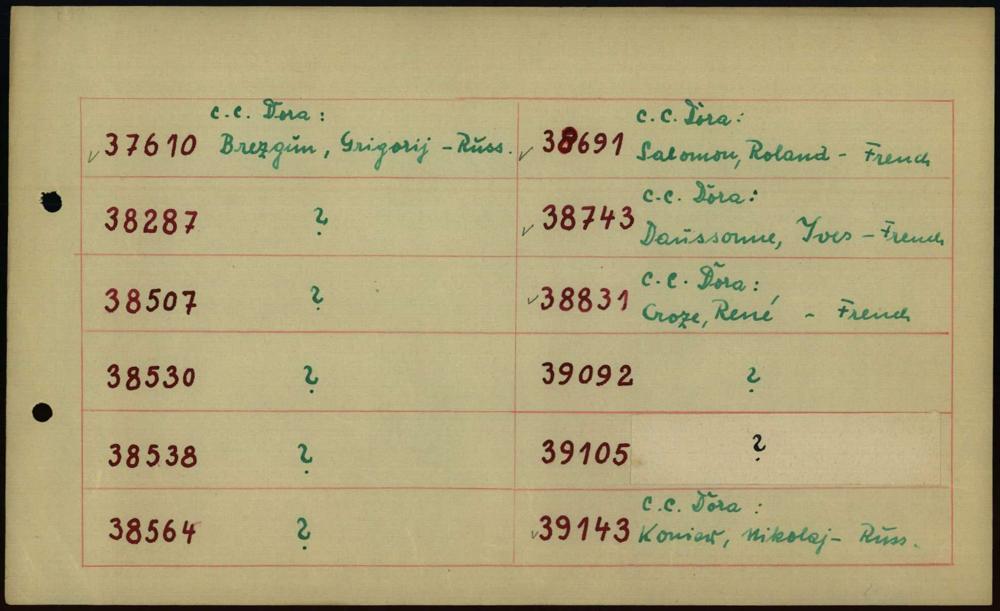 c.c. Dora:
37610 Brezgun, Grigorij - Russ.
38287 ?
38507 ?
38530 ?
38538 ?
38564 ?
c.c. Dora:
38691 Salomon, Roland - French
c.c. Dora:
38743 Daussonne, Yves - French
c.c. Dora:
38831 Croze, René - French
39092 ?
39105 ?
c.c. Dora:
39143 Koniew, Nikolaj - Russ.